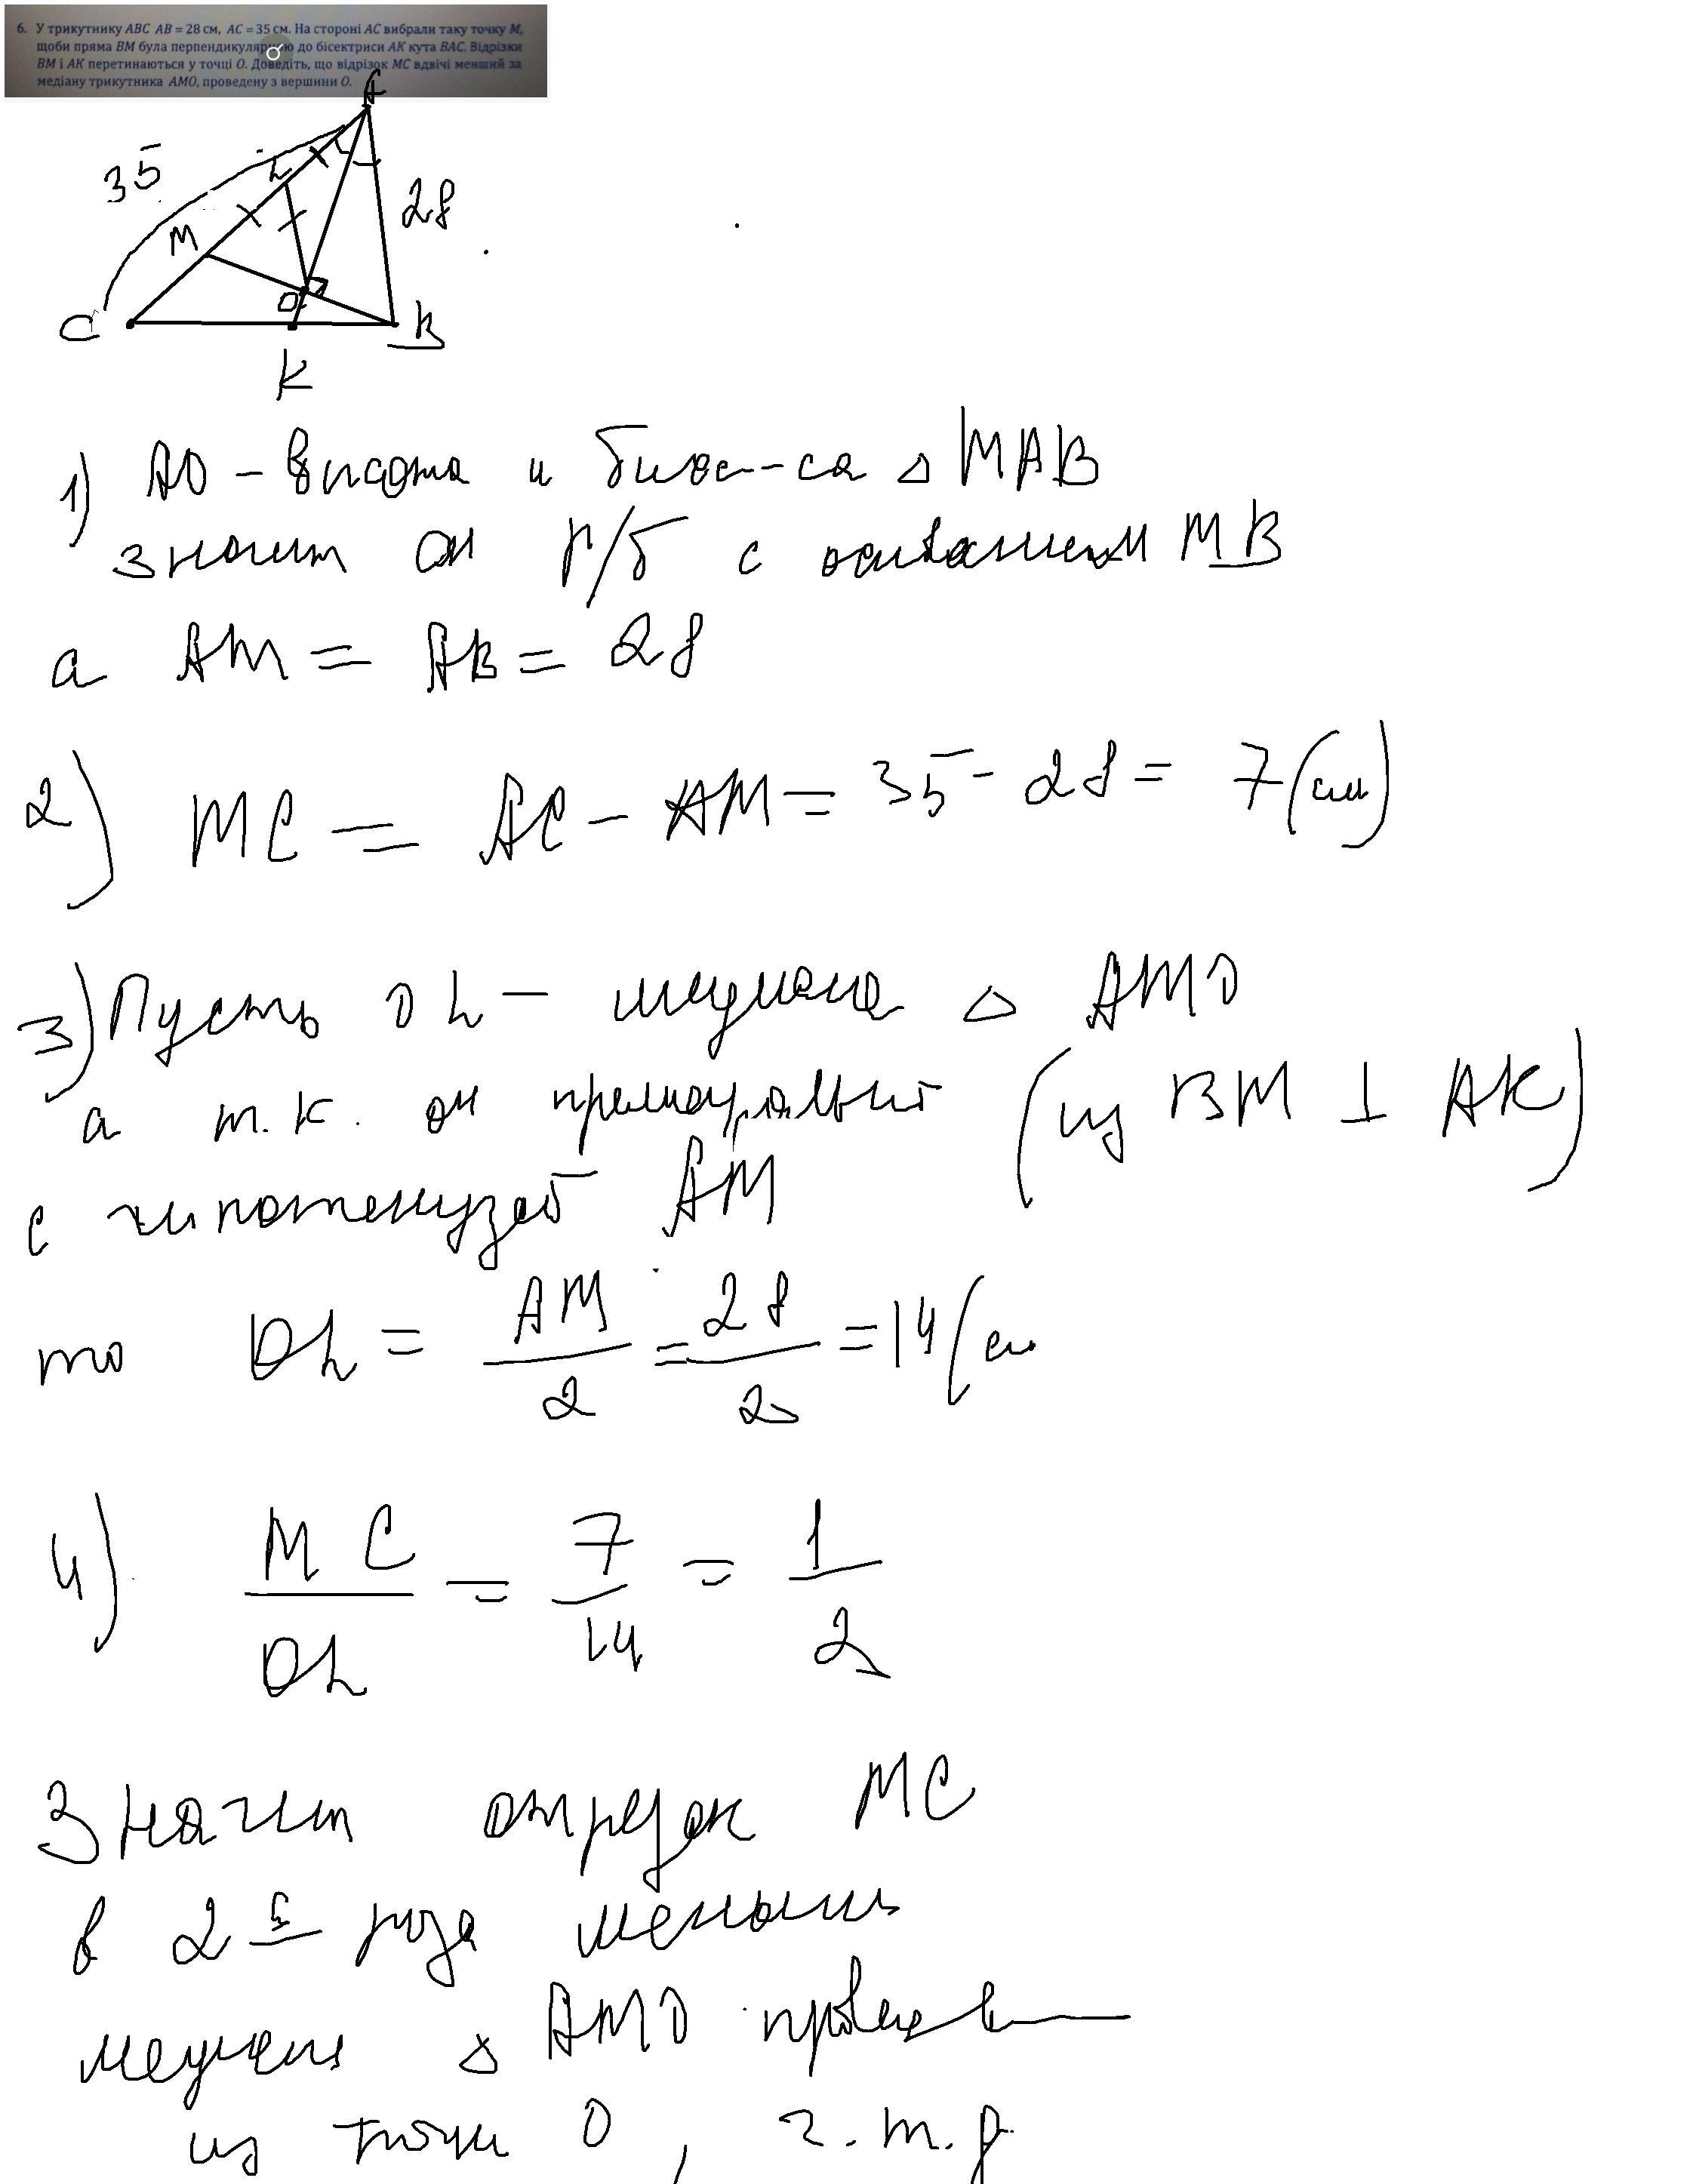 6. У трикутнику ABC AB = 28 см, AC = 35 см. На стороні AC вибрали таку точку M,
щоби пряма BM була перпендикулярною до бісектриси AK кута BAC. Відрізки
BM і AK перетинаються у точці O. Доведіть, що відрізок MC вдвічі менший за
медіану трикутника AMO, проведену з вершини O.
A
35
L
28
M
O
C
B
K
1) AO - высота и бисс-са △ MAB
значит он р/б с основанием MB
а AM = AB = 28
2) MC = AC - AM = 35 - 28 = 7 (см)
3) Пусть OL - медиана △ AMO
а т.к. он прямоугольный (из BM ⊥ AK)
с гипотенузой AM
то OL = AM/2 = 28/2 = 14 (см
4) MC/OL = 7/14 = 1/2
Значит отрезок MC
в 2 раза меньше
медианы △ AMO
из точки O, ч.т.д.